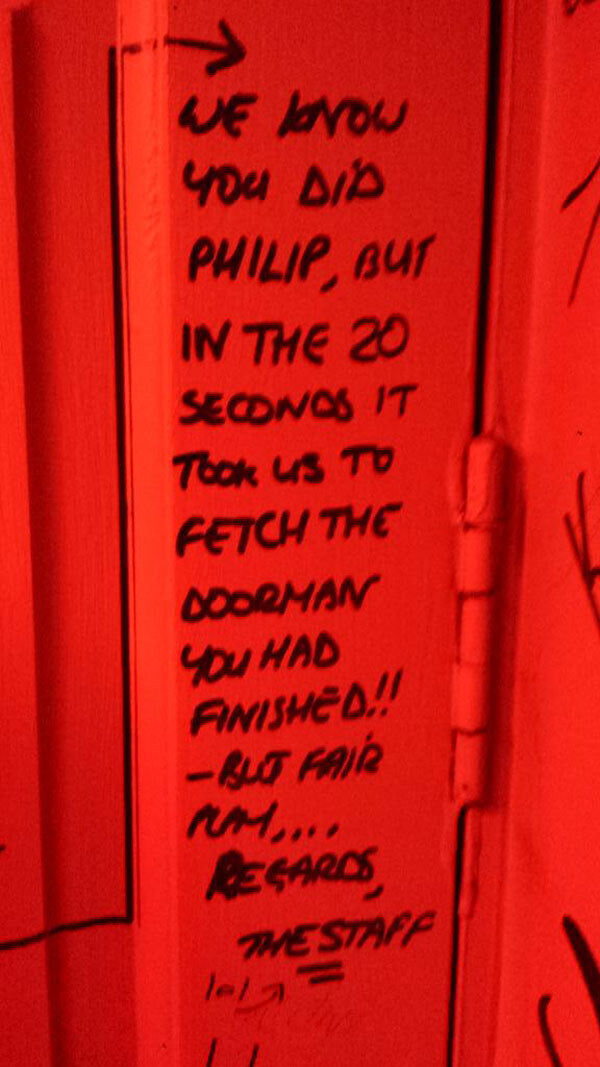 WE KNOW
YOU DID
PHILIP, BUT
IN THE 20
SECONDS IT
TOOK US TO
FETCH THE
DOORMAN
YOU HAD
FINISHED!!
- BUT FAIR
PLAY,...
REGARDS,
THE STAFF